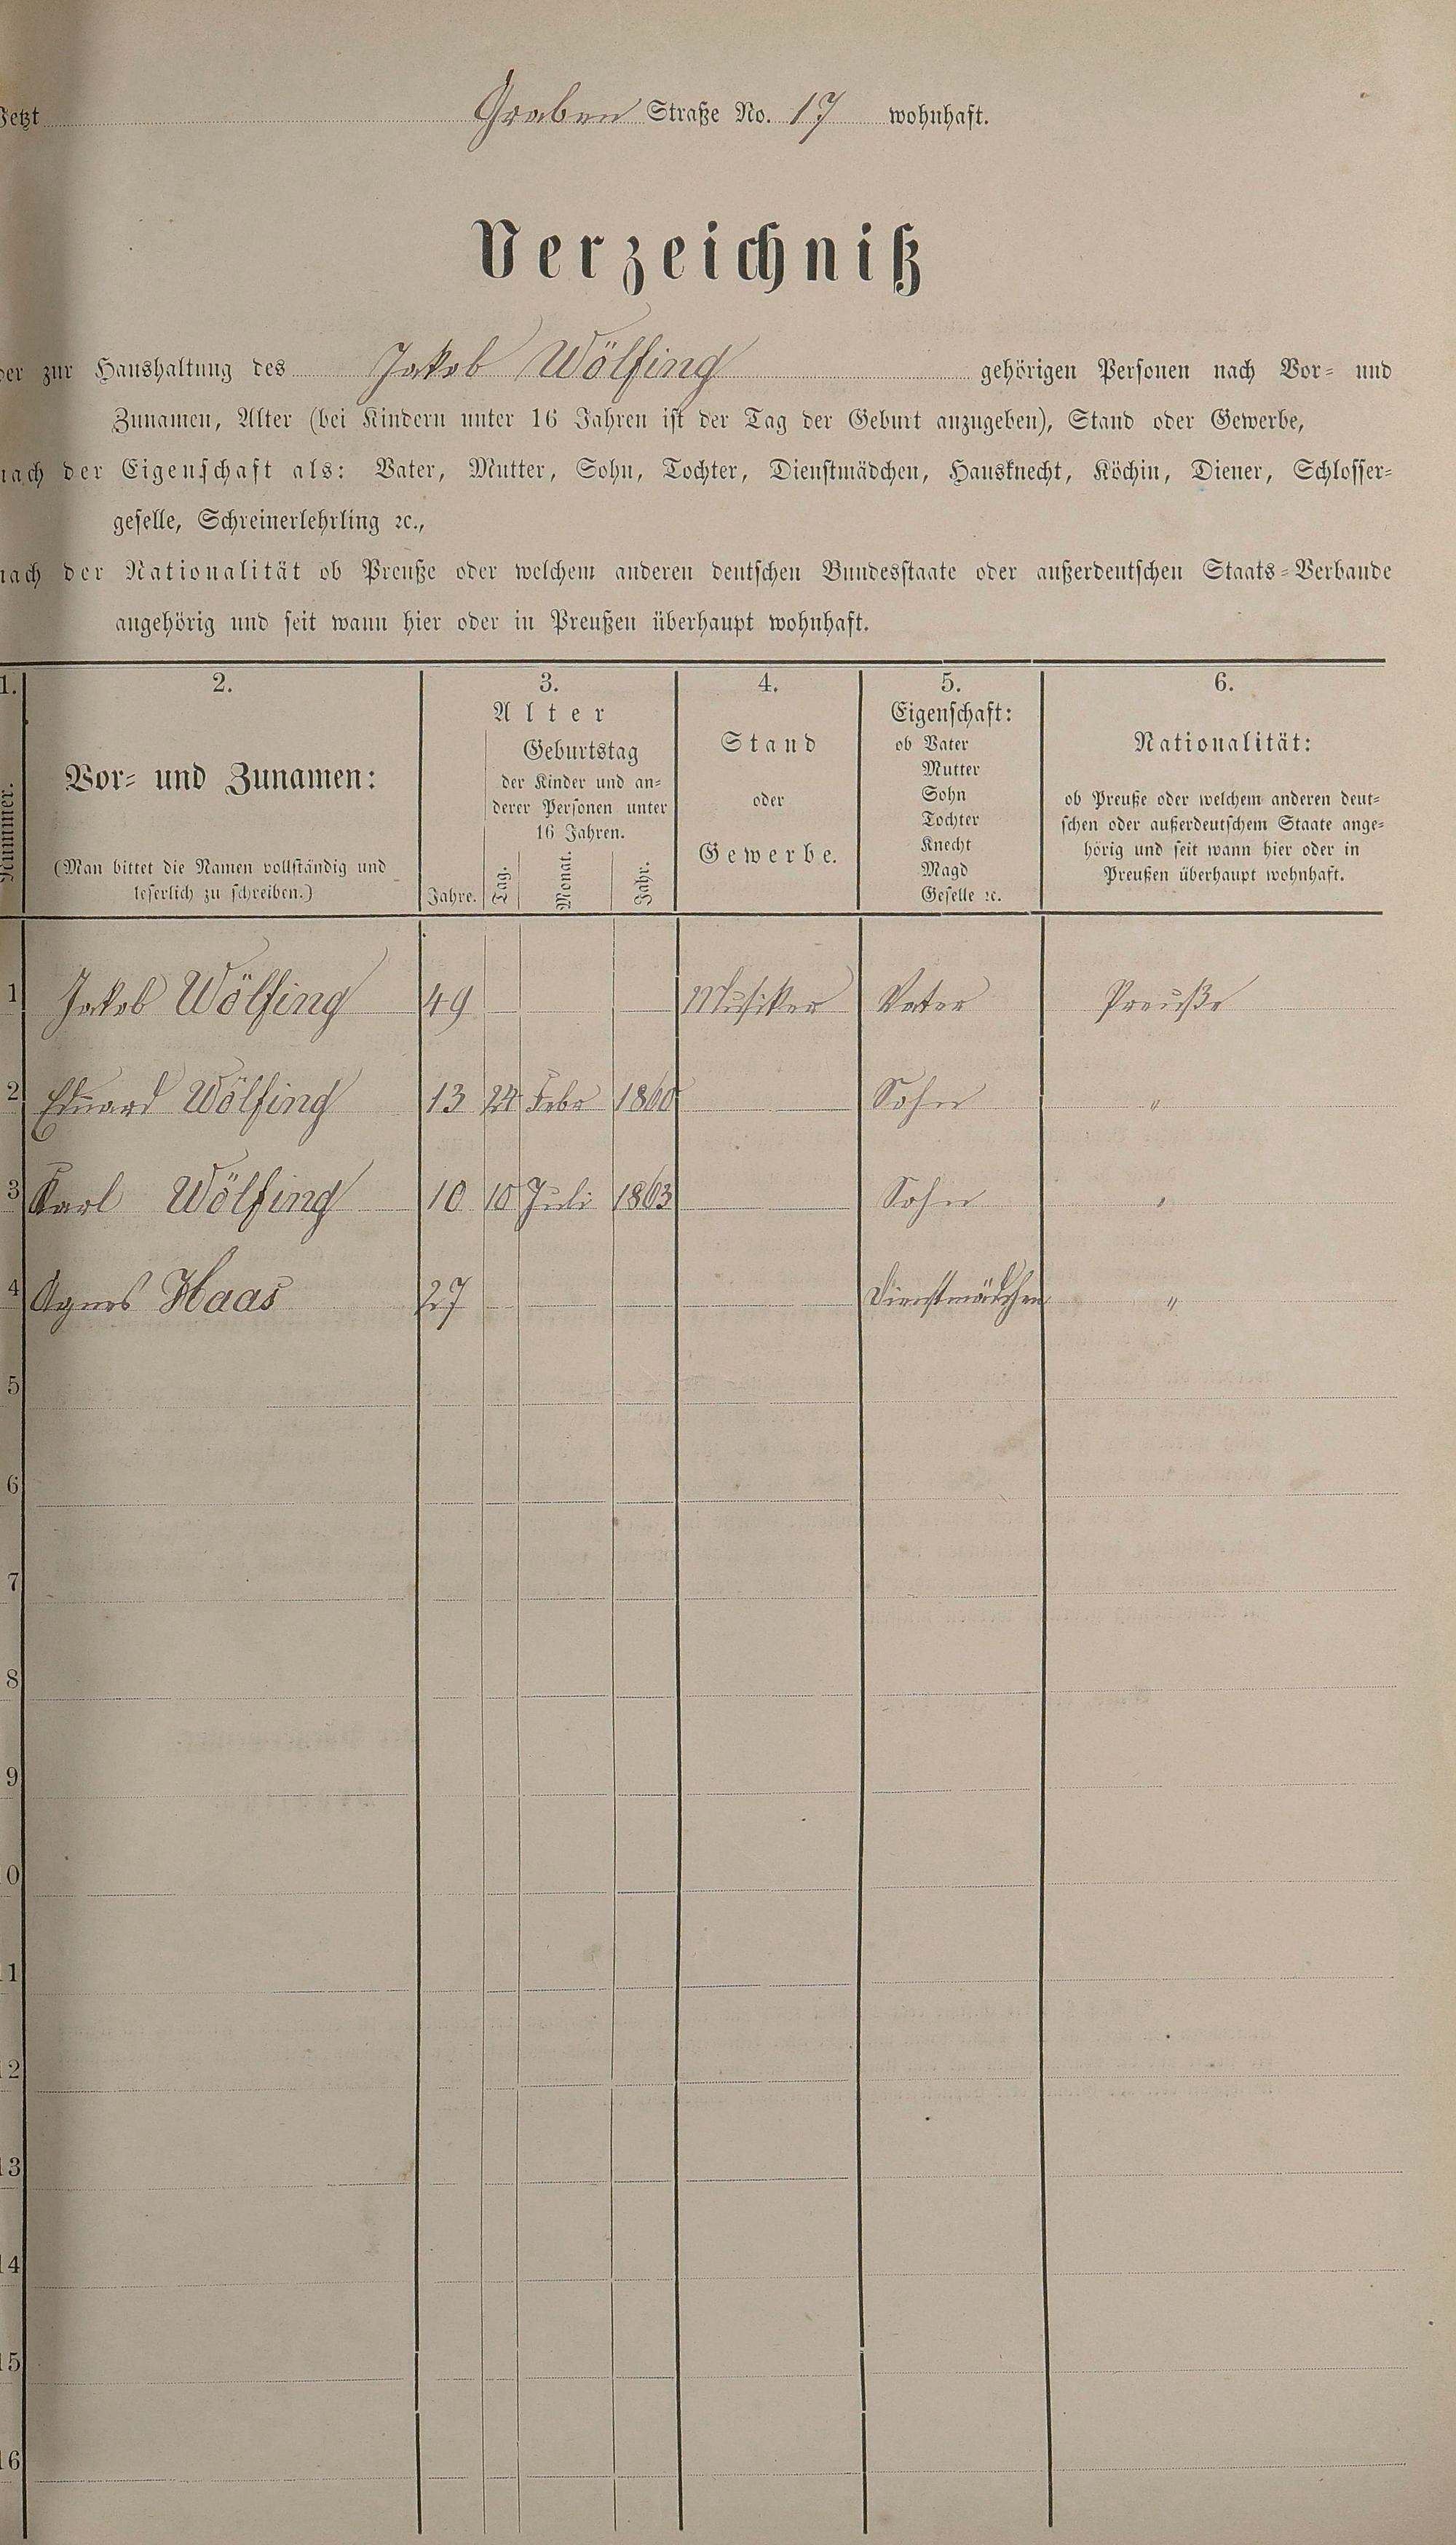 Jetzt Graben Straße No. 17 wohnhaft.
Verzeichniß
der zur Haushaltung des Jakob Wölfing gehörigen Personen nach Vor- und
Zunamen, Alter (bei Kindern unter 16 Jahren ist der Tag der Geburt anzugeben), Stand oder Gewerbe,
nach der Eigenschaft als: Vater, Mutter, Sohn, Tochter, Dienstmädchen, Hausknecht, Köchin, Diener, Schlosser-
geselle, Schreinerlehrling ꝛc.,
nach der Nationalität ob Preuße oder welchem anderen deutschen Bundesstaate oder außerdeutschen Staats-Verbande
angehörig und seit wann hier oder in Preußen überhaupt wohnhaft.
1. 2. 3. 4. 5. 6.
Nummer.
Vor- und Zunamen:
(Man bittet die Namen vollständig und
leserlich zu schreiben.)
Alter
Geburtstag
der Kinder und an-
derer Personen unter
16 Jahren.
Jahre. Tag. Monat. Jahr.
Stand
oder
Gewerbe.
Eigenschaft:
ob Vater
Mutter
Sohn
Tochter
Knecht
Magd
Geselle ꝛc.
Nationalität:
ob Preuße oder welchem anderen deut-
schen oder außerdeutschem Staate ange-
hörig und seit wann hier oder in
Preußen überhaupt wohnhaft.
1 Jakob Wölfing 49 Musiker Vater Preuße
2 Eduard Wölfing 13 24 Febr 1860 Sohn "
3 Karl Wölfing 10 10 Juli 1863 Sohn "
4 Agnes Haas 27 Dienstmädchen "
5
6
7
8
9
0
11
12
13
14
15
16